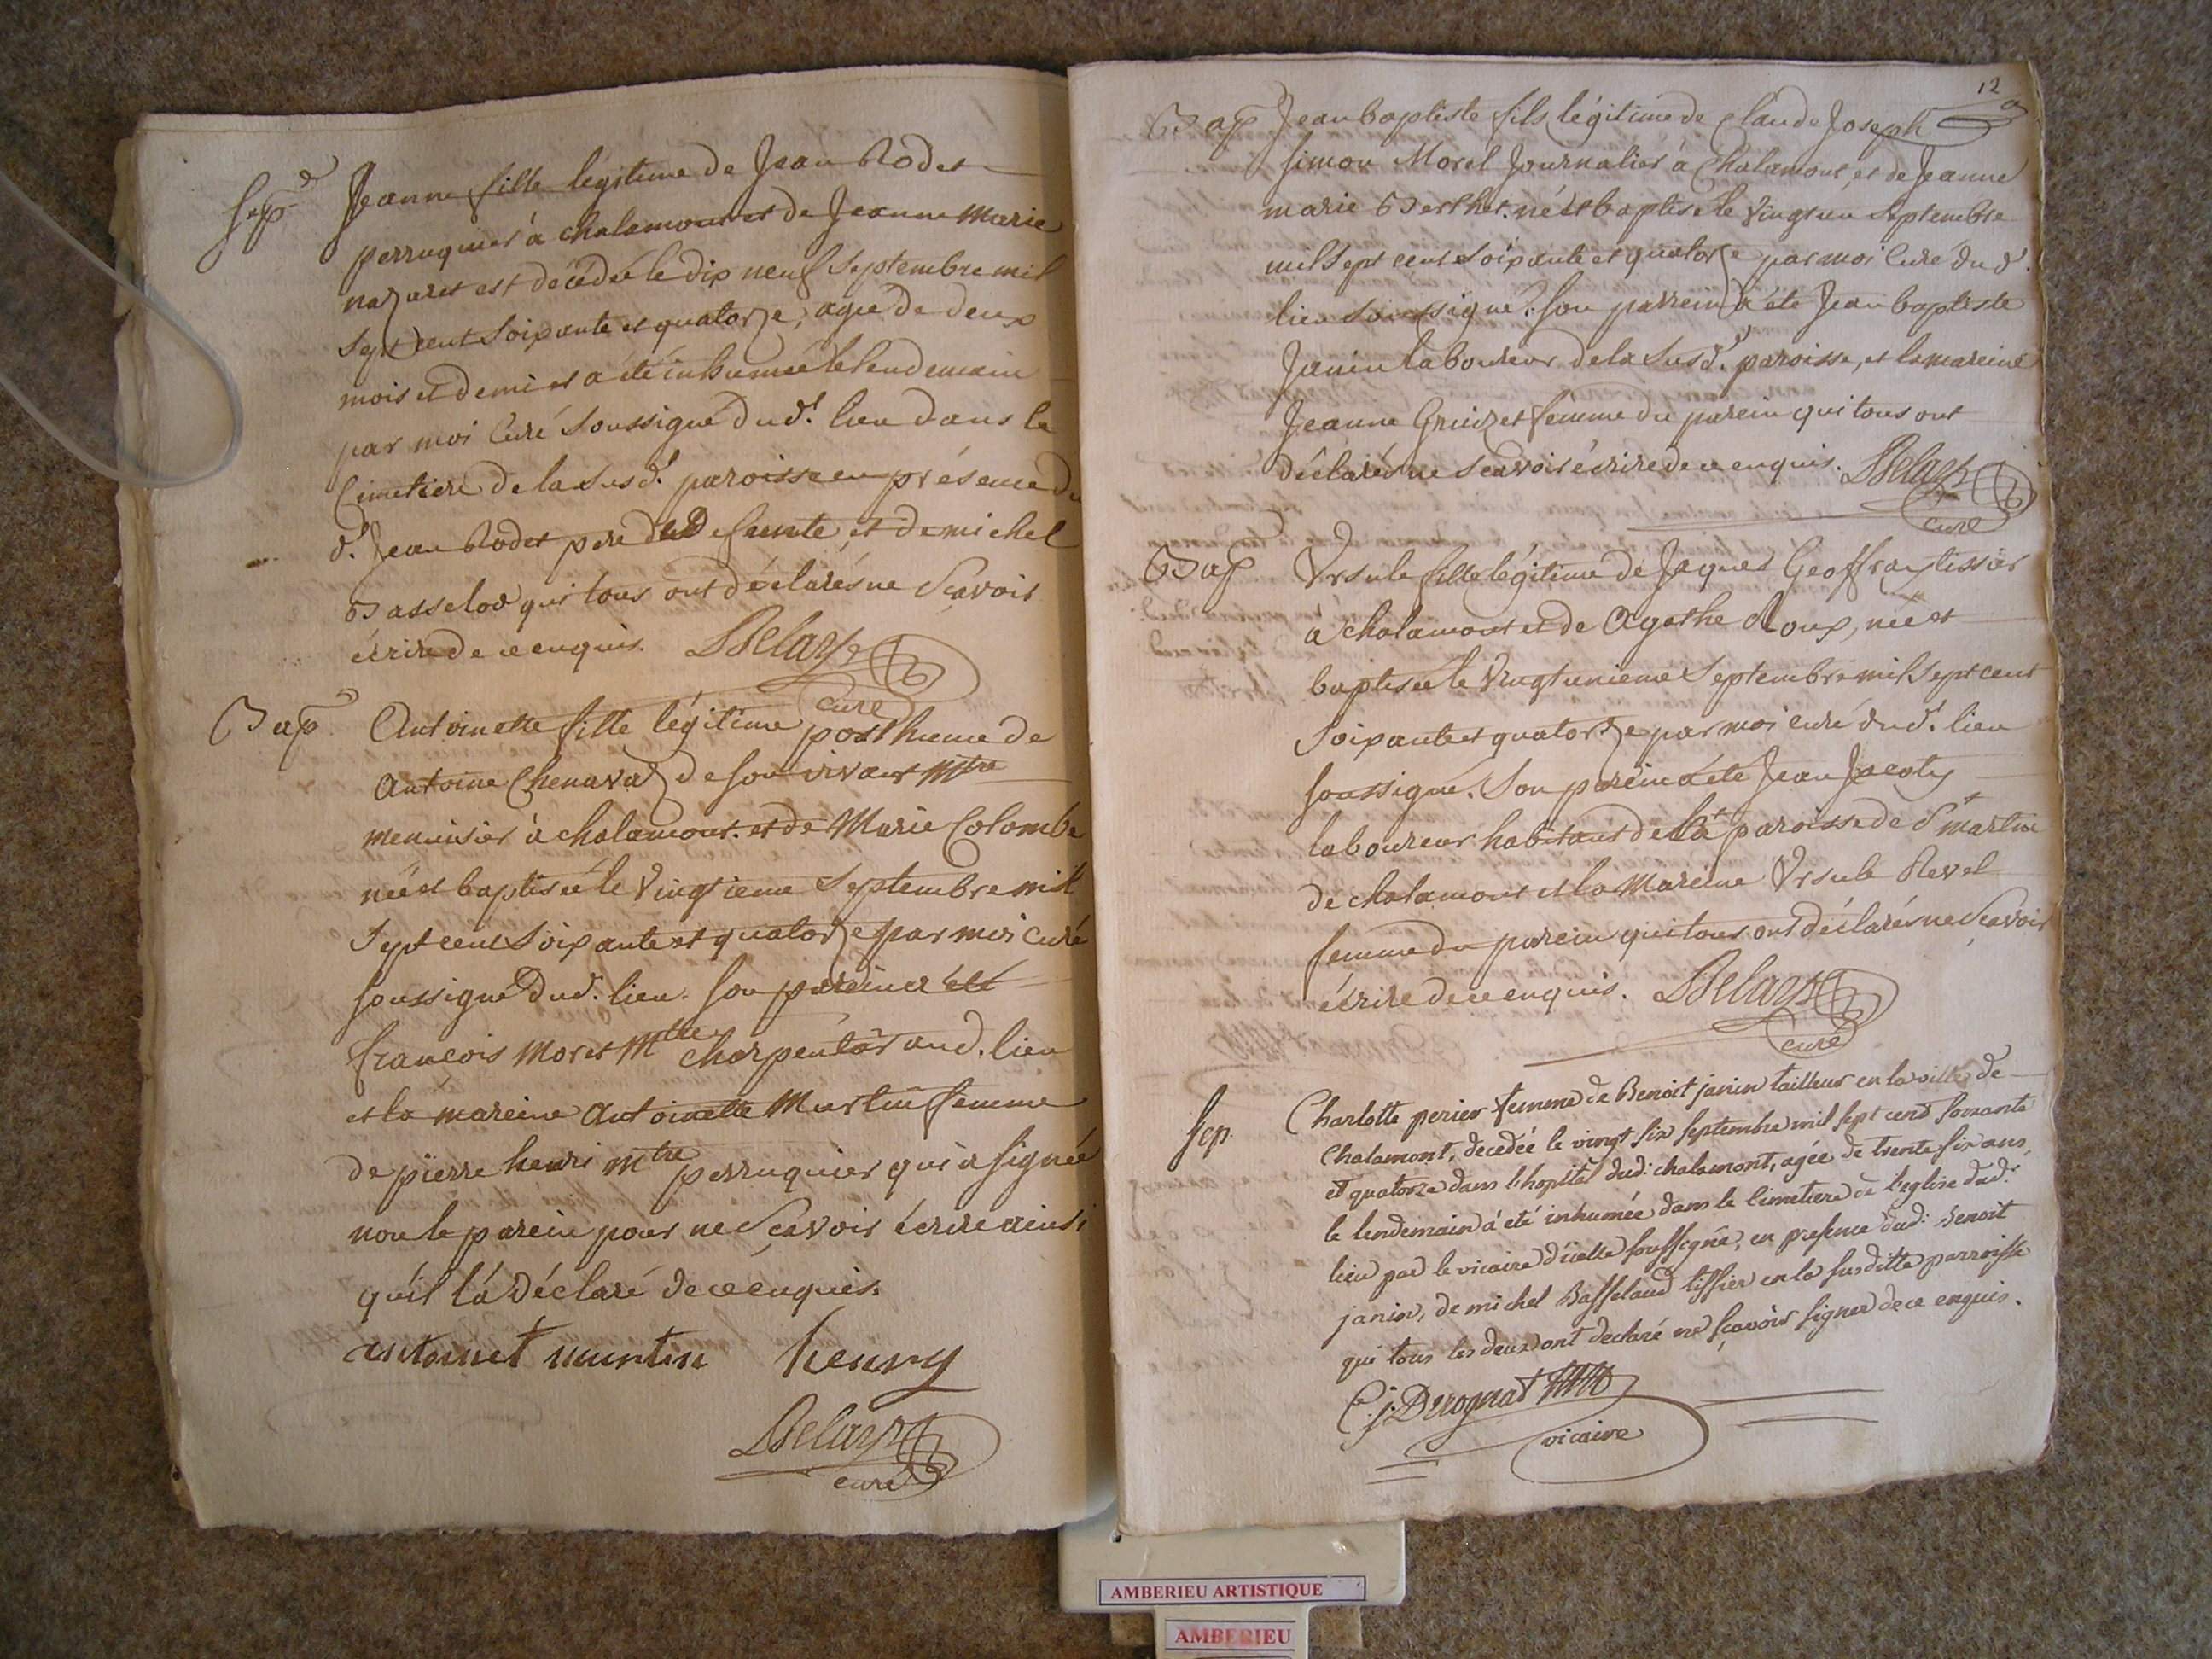 Sep.
Jeanne fille légitime de Jean Rodet
perruquier à chalamont et de Jeanne Marie
nazaret est décédée le dix neuf Septembre mil
Sept cent Soixante et quatorze, agée de deux
mois et demi et a été inhumée le lendemain
par moi Curé Soussigné dud. lieu dans le
Cimetiere de la Susd. paroisse en présence du
d. Jean Rodet pere de la defunte, et de michel
Basselod qui tous ont déclarés ne Scavoir
écrire de ce enquis. Delaz
curé
Bap.
Antoinette fille légitime posthume de
Antoine Chenavaz de son vivant Mtre
menuisier à chalamont. et de Marie Colombe
née et baptisée le Vingtieme Septembre mil
Sept cent Soixante et quatorze par moi Curé
soussigné dud. lieu. son parein a été
françois Moret Mtre charpentier aud. lieu
et la mareine Antoinette Martin femme
de pierre henri Mtre perruquier qui a signée
non le parein pour ne Sçavoir écrire ainsi
qu'il l'a déclaré de ce enquis.
antoinet martin henry
Delaz
curé
12
Bap Jean baptiste fils légitime de Claude Joseph
simon Morel Journalier à Chalamont, et de Jeanne
marie Berthet. né et baptisé le Vingt un Septembre
mil Sept cent soixante et quatorze par moi Curé dud.
lieu soussigné. son parrein a été Jean baptiste
Janin laboureur de la Susd. paroisse, et la mareine
Jeanne Gruizet femme du parein qui tous ont
déclarés ne Scavoir écrire de ce enquis. Delaz
curé
Bap Ursule fille légitime de Jaques Geoffray tissier
a chalamont et de Agathe Roux, née et
baptisée le Vingt unieme Septembre mil Sept cent
Soixante et quatorze par moi curé dud. lieu
soussigné. Son parein a été Jean Jacoty
laboureur habitant de la paroisse de St martin
de chalamont et la Mareine Ursule Revel
femme du parein qui tous ont déclarés ne Scavoir
écrire de ce enquis. Delaz
curé
Sep. Charlotte perier femme de Benoit janin tailleur en la ville de
Chalamont, decedée le vingt six septembre mil sept cent soixante
et quatorze dans l'hopital dud: chalamont, agée de trente six ans,
le lendemain a été inhumée dans le Cimetiere de l'eglise dud:
lieu par le vicaire d'icelle soussigné, en presence dud: Benoit
janin, de michel Basseland tissier en la susditte parroisse
qui tous les deux ont declaré ne sçavoir signer de ce enquis.
vicaire
AMBERIEU ARTISTIQUE
AMBERIEU